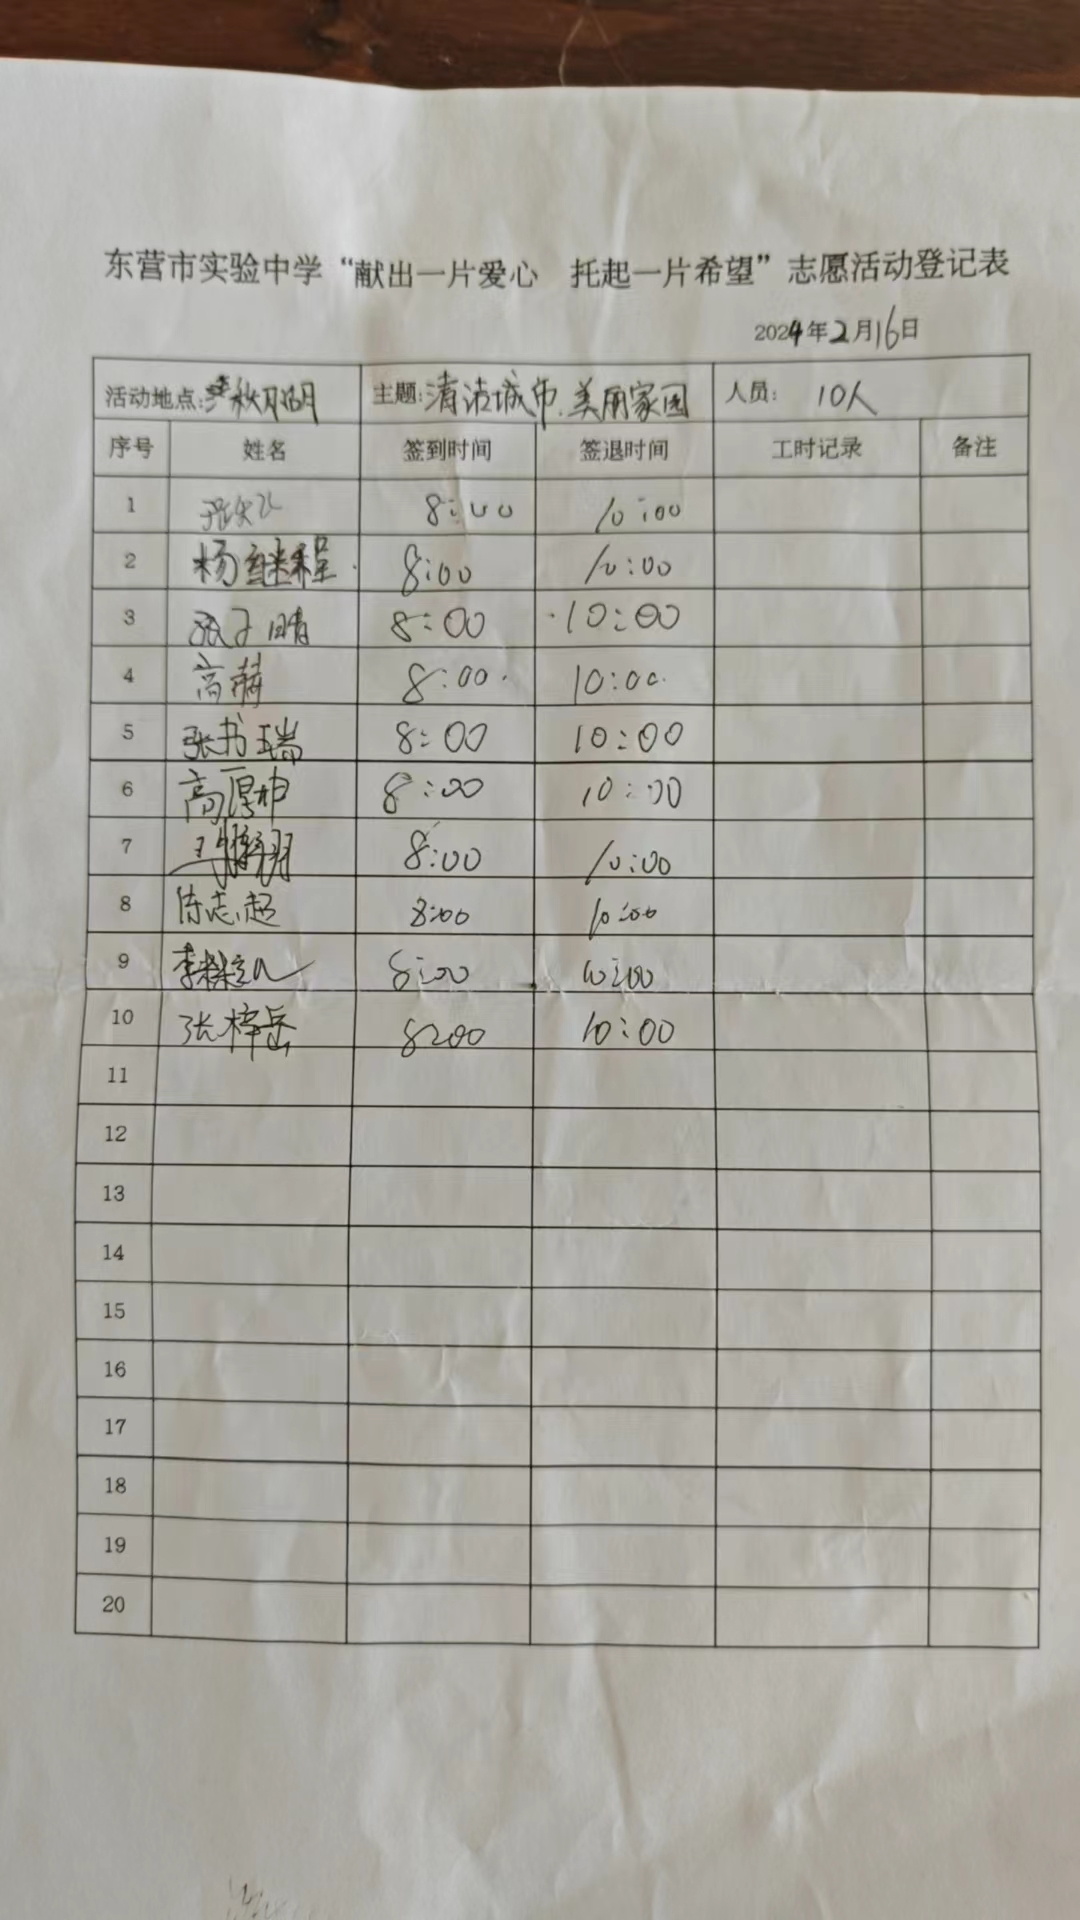 东营市实验中学“献出一片爱心 托起一片希望”志愿活动登记表
2024年2月16日
活动地点: 秋月湖 主题: 清洁城市.美丽家园 人员: 10人
序号 姓名 签到时间 签退时间 工时记录 备注
1 8:00 10:00
2 杨继程 8:00 10:00
3 张子晴 8:00 10:00
4 高赫 8:00 10:00
5 张书瑞 8:00 10:00
6 高厚坤 8:00 10:00
7 8:00 10:00
8 陈志超 8:00 10:00
9 李 8:00 10:00
10 张梓岳 8:00 10:00
11
12
13
14
15
16
17
18
19
20